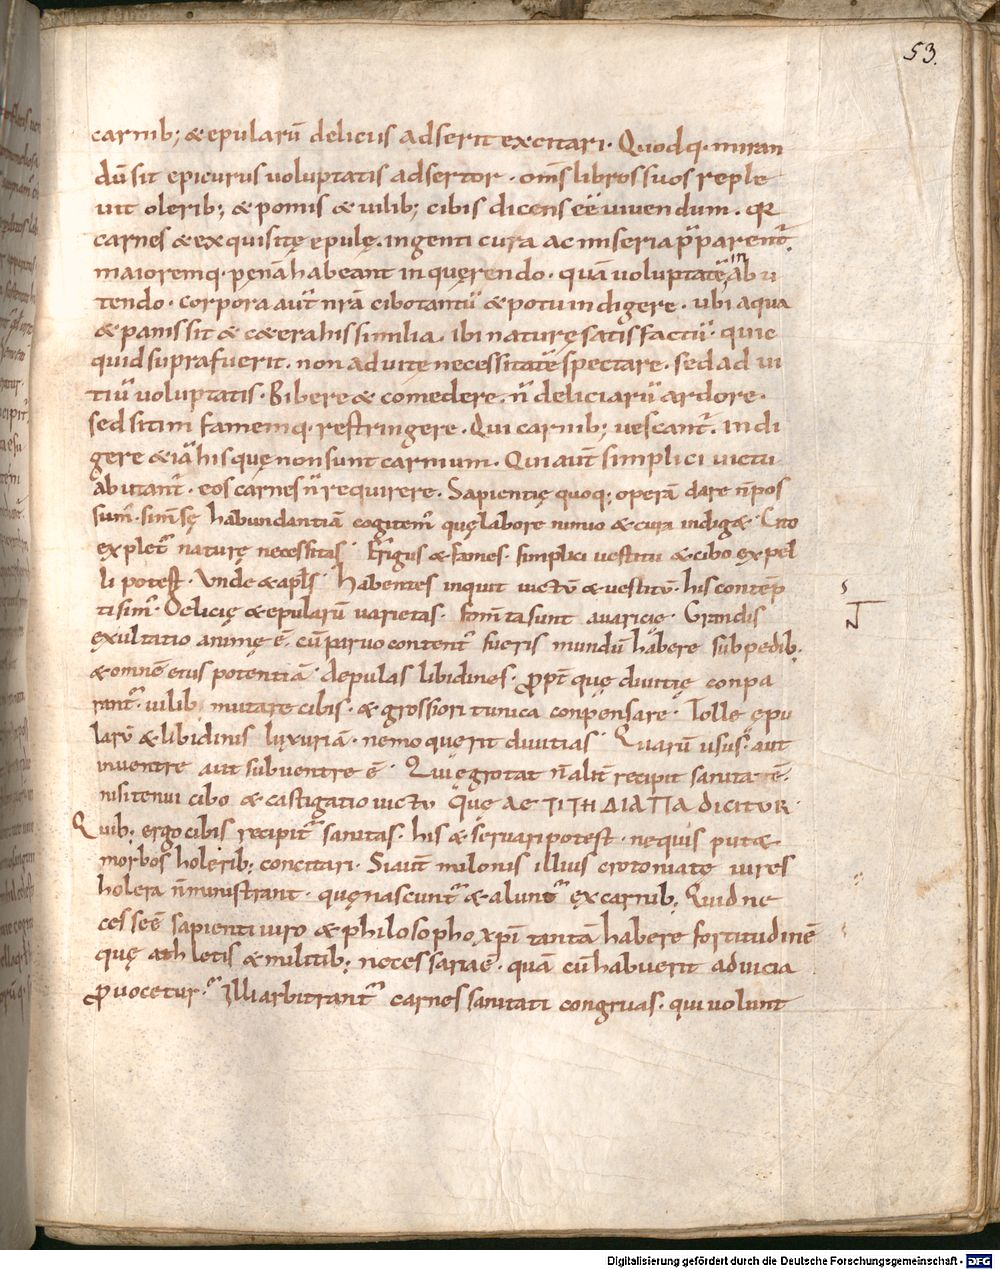 53.
carnib; & epularũ deliciis adserit excitari. Quodq. miran
dũ sit epicurus uoluptatis adsertor. om̃s libros suos reple
uit olerib; & pomis & uilib; cibis dicens eẽ uiuendum. 
carnes & exquisitę epulę. ingenti cura ac miseria p̃parent̃.
maioremq. pęnã habeant in quęrendo. quã uoluptatẽ in ab u
tendo. corpora aut̃ nr̃a cibo tantũ & potu indigere. ubi aqua
& panis sit & c&era his similia. ibi naturę satis factũ. quic
quid supra fuerit. non ad uitę necessitatẽ spectare. sed ad ui
tiũ uoluptatis. Bibere & comedere. ñ deliciarũ ardore.
sed sitim famemq. restringere. Qui carnib; uescant̃. indi
gere &iã his quę non sunt carnium. Qui aut̃ simplici uictu
abutant̃. eos carnes ñ requirere. Sapientię quoq; operã dare ñ pos
sum̃. si m̃sę habundantiã cogitem̃ quę labore nimio & cura indig&. Cito
explet̃ naturę necessitas. Frigus & fames. simplici uestitu & cibo expel
li potest. Unde & apl̃s. habentes inquit uictũ & uestitũ. his contẽp
ti sim̃. Delicię & epularũ uarietas. fom̃ta sunt auaricię. Grandis
exultatio animę ẽ. cũ paruo content̃ fueris mundũ habere sub pedib;
& omnẽ eius potentiã. aepulas libidines. ꝓpt̃ quę diuitię conpa
rant̃. uilib; mutare cibis. & grossiori tunica conpensare. Tolle ępu
larũ & libidinis luxuriã. nemo querit diuitias. Quarũ usus. aut
in uentre aut sub uentre ẽ. Qui ęgrotat ñ alit̃ recipit sanitatẽ.
nisi tenui cibo & castigatio uictu que ΛΕΠΤΗ ΔΙΑΠΑ dicitur.
Quib; ergo cibis recipit̃ sanitas. his & seruari potest. ne quis put&
morbos holerib; concitari. Si aut̃ milonis illius crotoniatę uires
holera ñ ministrant. quę nascunt̃ & alunt̃ ex carnib; Quid ne
cesse ẽ sapienti uiro & philosopho xp̃i tantã habere fortitudinẽ
quę athletis & militib; necessaria ẽ. quã cũ habuerit ad uicia
ꝓuocetur. Illi arbitrant̃ carnes sanitati congruas. qui uolunt
Digitalisierung gefördert durch die Deutsche Forschungsgemeinschaft - DFG